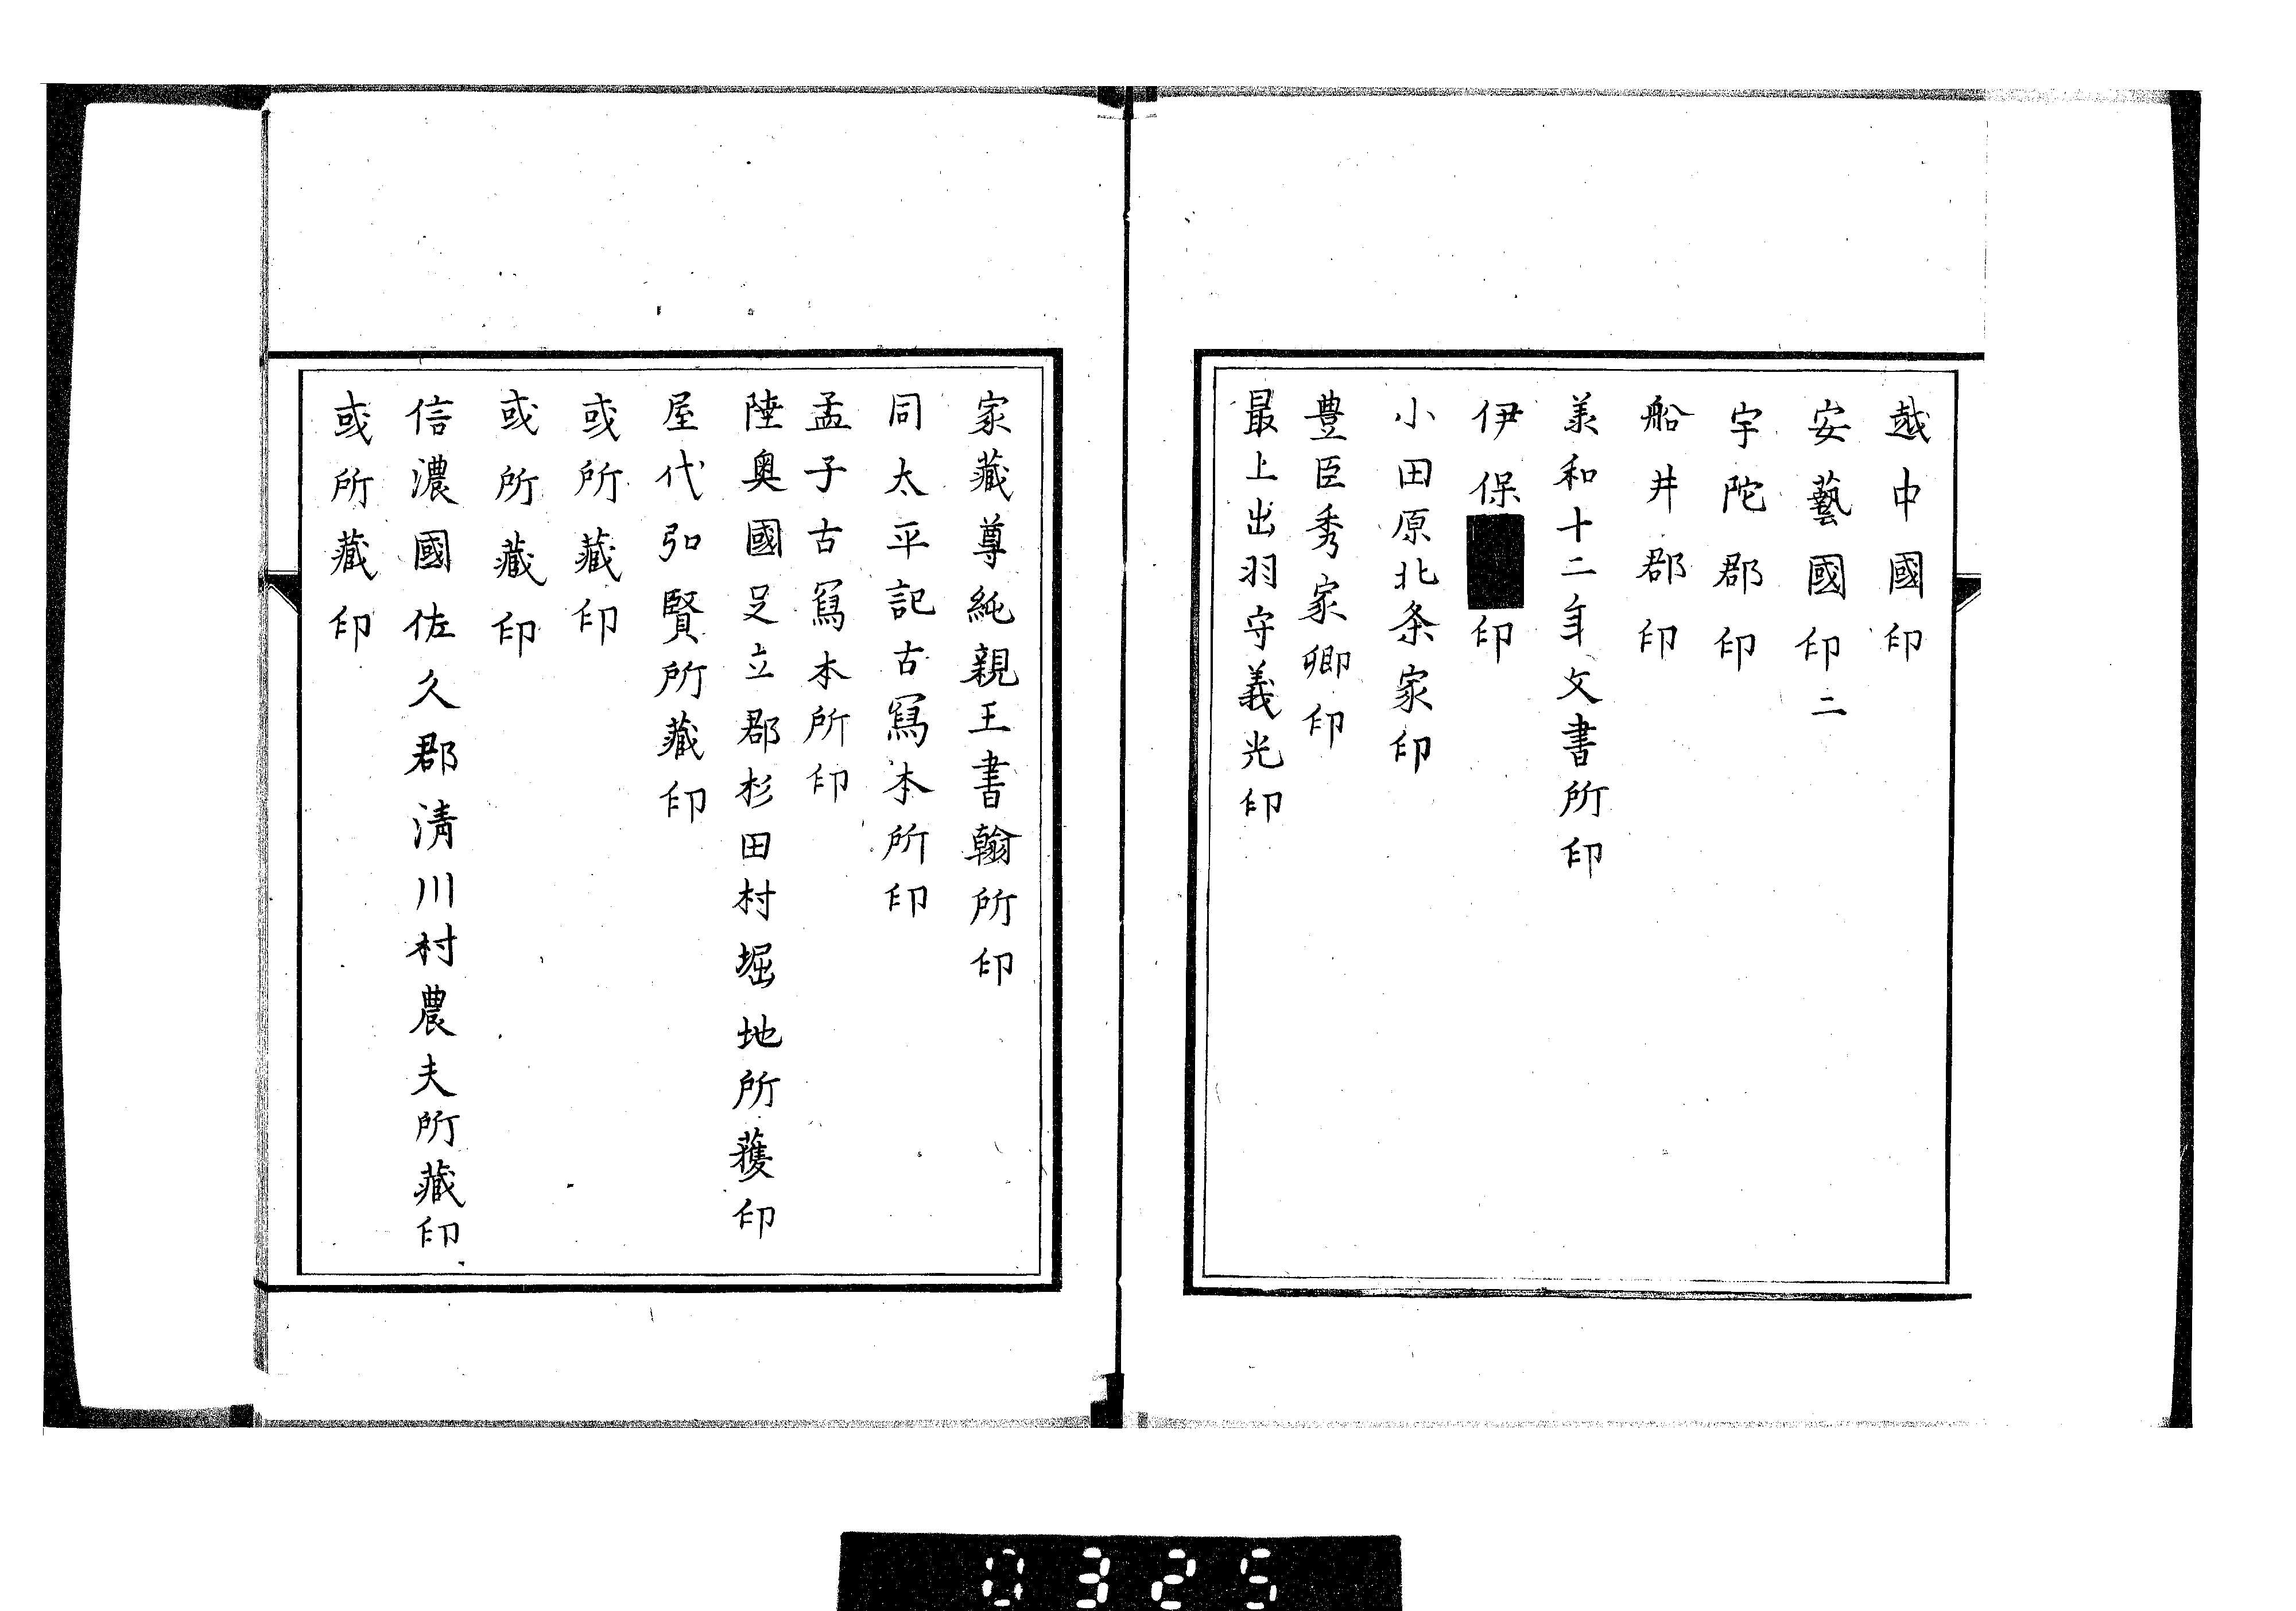 越中國印
安藝國印二
宇陀郡印
船井郡印
羨和十二年文書所印
伊保印
小田原北条家印
豊臣秀家卿印
最上出羽守義光印
家藏尊純親王書翰所印
同太平記古寫本所印
孟子古寫本所印
陸奥國足立郡杉田村堀地所獲印
屋代弘賢所藏印
或所藏印
或所藏印
信濃國佐久郡清川村農夫所藏印
或所藏印
0325